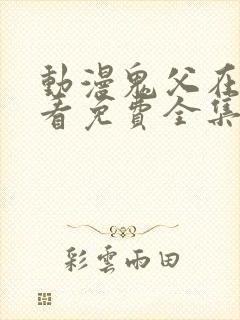 動漫鬼父在
看免費全集
彩雲雨田